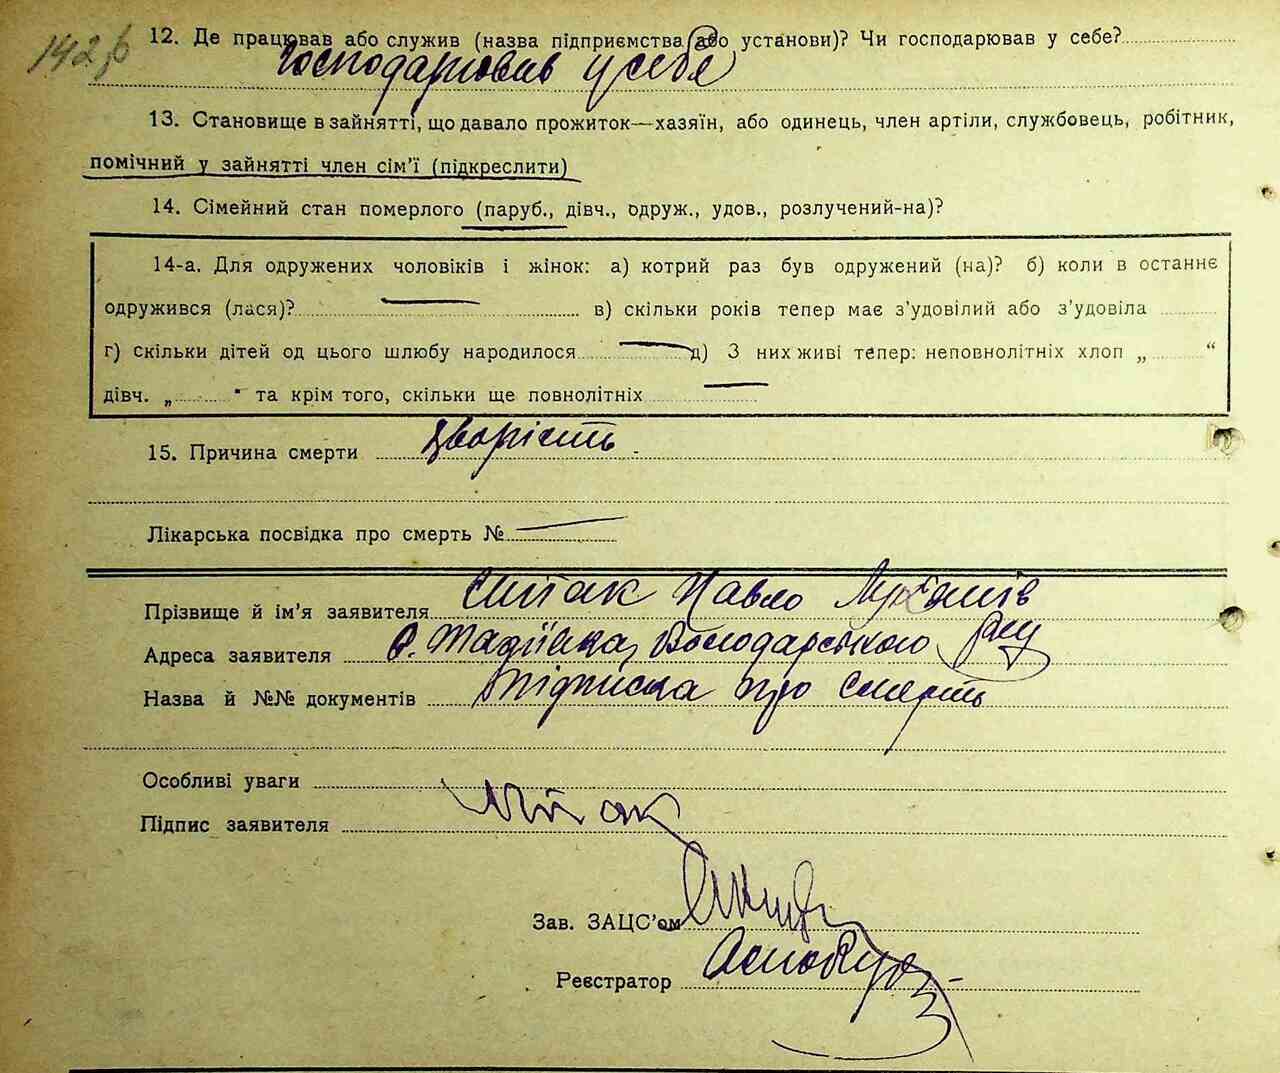 142б
12. Де працював або служив (назва підприємства або установи)? Чи господарював у себе?
Господарював у себе
13. Становище в зайнятті, що давало прожиток—хазяїн, або одинець, член артіли, службовець, робітник,
помічний у зайнятті член сім'ї (підкреслити)
14. Сімейний стан померлого (паруб., дівч., одруж., удов., розлучений-на)?
14-а. Для одружених чоловіків і жінок: а) котрий раз був одружений (на)? б) коли в останнє
одружився (лася)? в) скільки років тепер має з'удовілий або з'удовіла
г) скільки дітей од цього шлюбу народилося д) З них живі тепер: неповнолітніх хлоп „ “
дівч. „ “ та крім того, скільки ще повнолітніх
15. Причина смерти
Лікарська посвідка про смерть №
Прізвище й ім'я заявителя Павло
Адреса заявителя с. Тадіївка, Володарського р-ну
Назва й №№ документів Підписка про смерть
Особливі уваги
Підпис заявителя
Зав. ЗАЦС'ом
Реєстратор